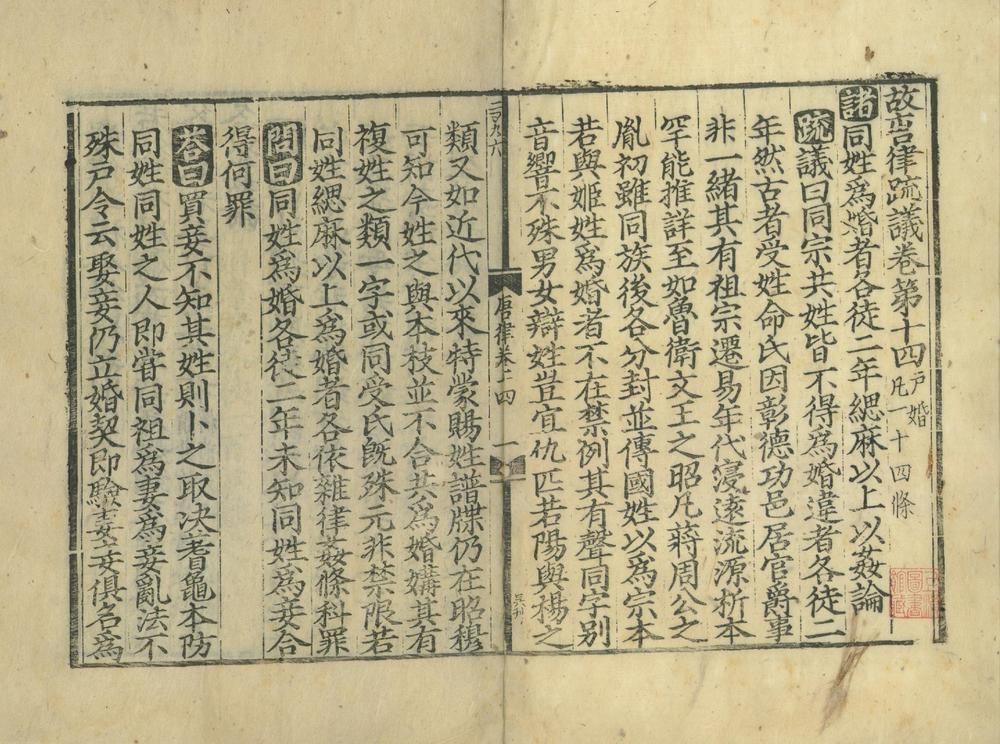 故唐律疏議卷第十四 戶婚 凡一十四條
諸同姓爲婚者各徒二年緦麻以上以姦論
疏議曰同宗共姓皆不得爲婚違者各徒二
年然古者受姓命氏因彰德功邑居官爵事
非一緒其有祖宗遷易年代寖遠流源析本
罕能推詳至如魯衛文王之昭凡蔣周公之
胤初雖同族後各分封並傳國姓以爲宗本
若與姬姓爲婚者不在禁例其有聲同字別
音響不殊男女辯姓豈宜仇匹若陽與楊之
唐律卷十四
一
類又如近代以來特蒙賜姓譜牒仍在昭穆
可知今姓之與本枝並不合共爲婚媾其有
複姓之類一字或同受氏既殊元非禁限若
同姓緦麻以上爲婚者各依雜律姦條科罪
問曰同姓爲婚各徒二年未知同姓爲妾合
得何罪
荅曰買妾不知其姓則卜之取決蓍龜本防
同姓同姓之人即嘗同祖爲妻爲妾亂法不
殊戶令云娶妾仍立婚契即驗妻妾俱名爲